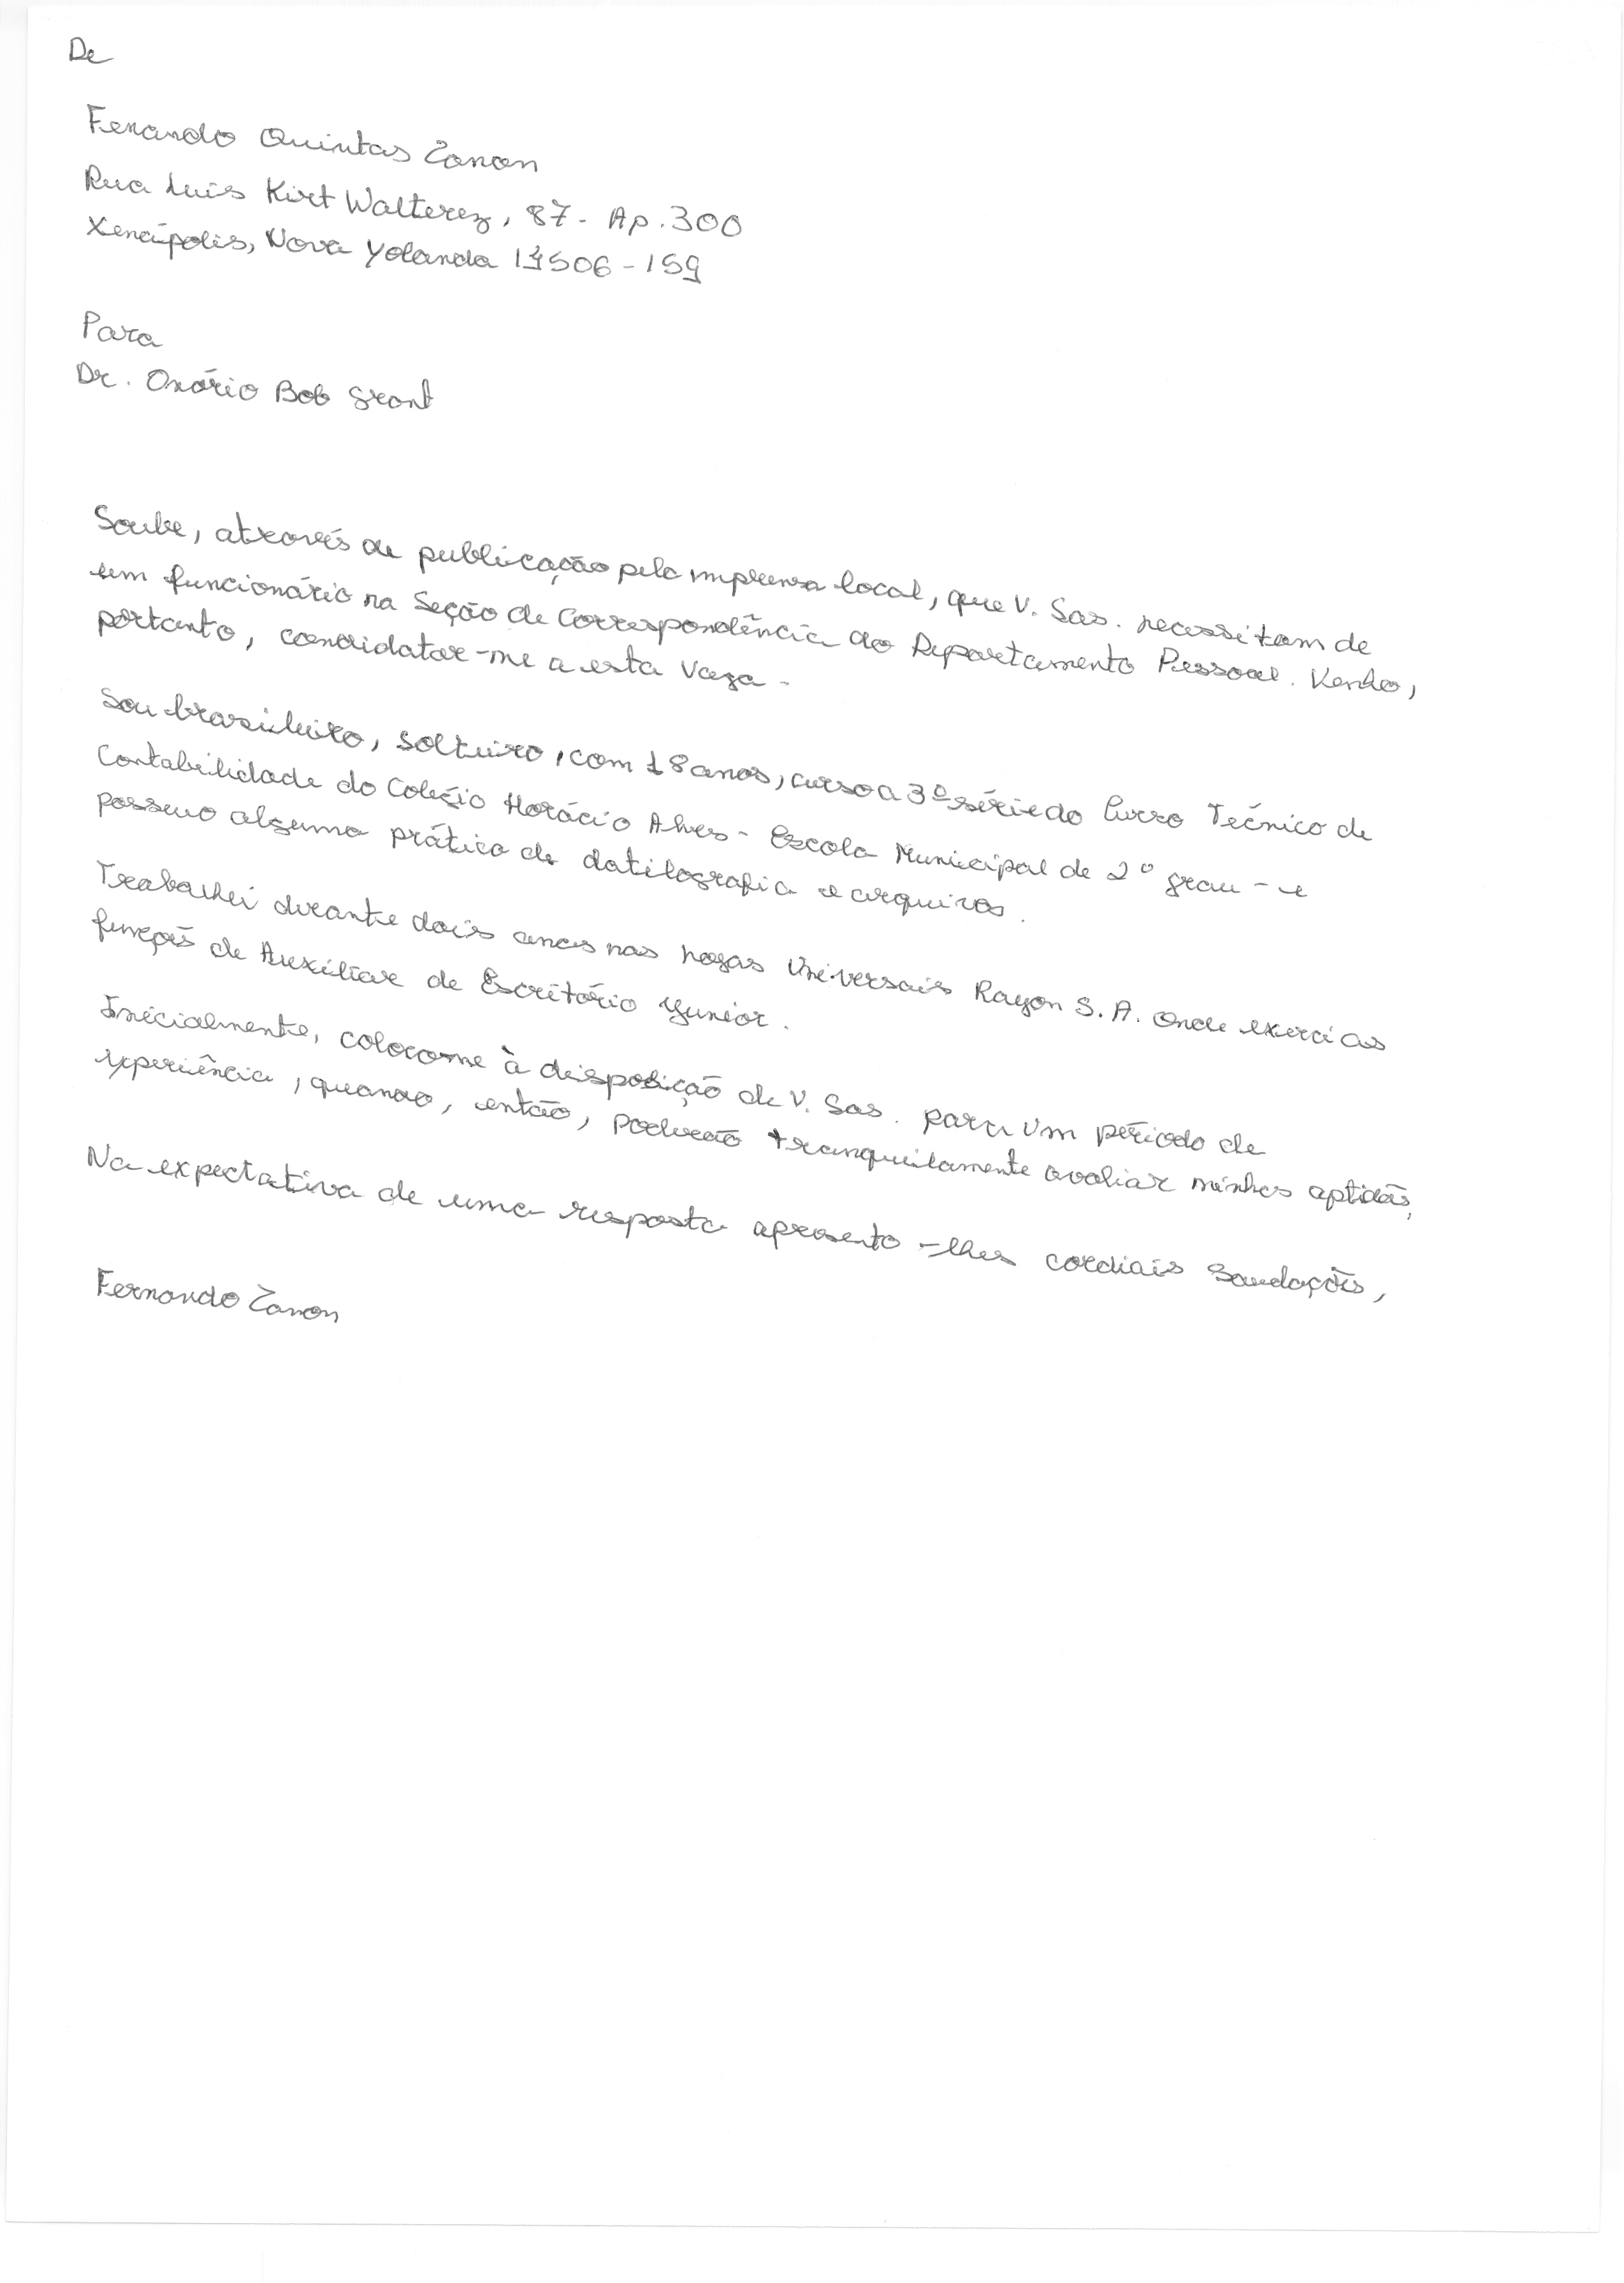 De
Fenando Quintas Zanon
Rua Luis Kirt Walterez, 87 - Ap. 300
Xenápolis, Nova Yolanda 506-159
Para
Dr. Onório Bob Grant
Soube, através de publicação pela imprensa local, que V. Sas. necessitam de
um funcionário na Seção de Correspondência do Departamento Pessoal. Venho,
portanto, candidatar-me a esta vaga -
Sou brasileiro, solteiro, com 18 anos, curso a 3º série do Curso Técnico de
Contabilidade do Colégio Horácio Alves - Escola Municipal de 2º grau - e
possuo alguma prática de datilografia e arquivos.
Trabalhei durante dois anos nas Universais Rayon S. A. onde exerci as
funções de Auxiliar de Escritório Yunior.
Inicialmente, coloco-me à disposição de V. Sas. para um período de
experiência, quando, então, poderão tranquilamente avaliar minhas aptidões,
Na expectativa de uma resposta apresento-lhes cordiais saudações,
Fernando Zanon